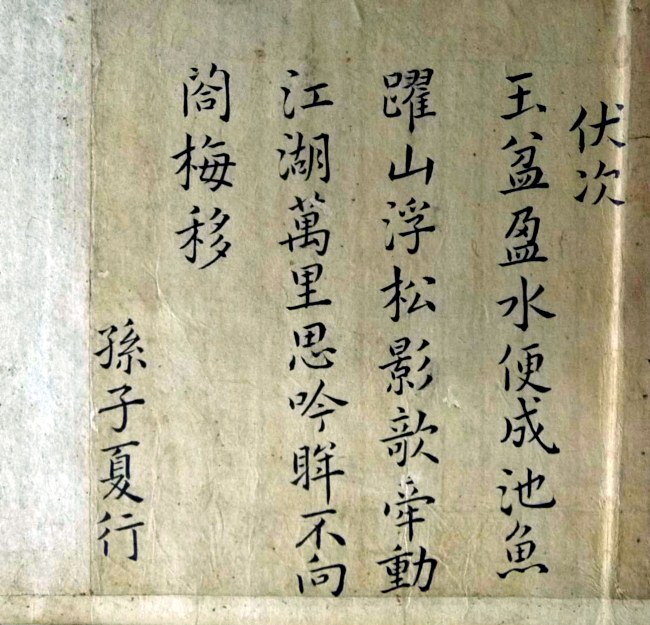 伏次
玉盆盈水便成池魚
躍山浮松影歌牽動
江湖萬里思吟眸不向
閤梅移
孫子夏行